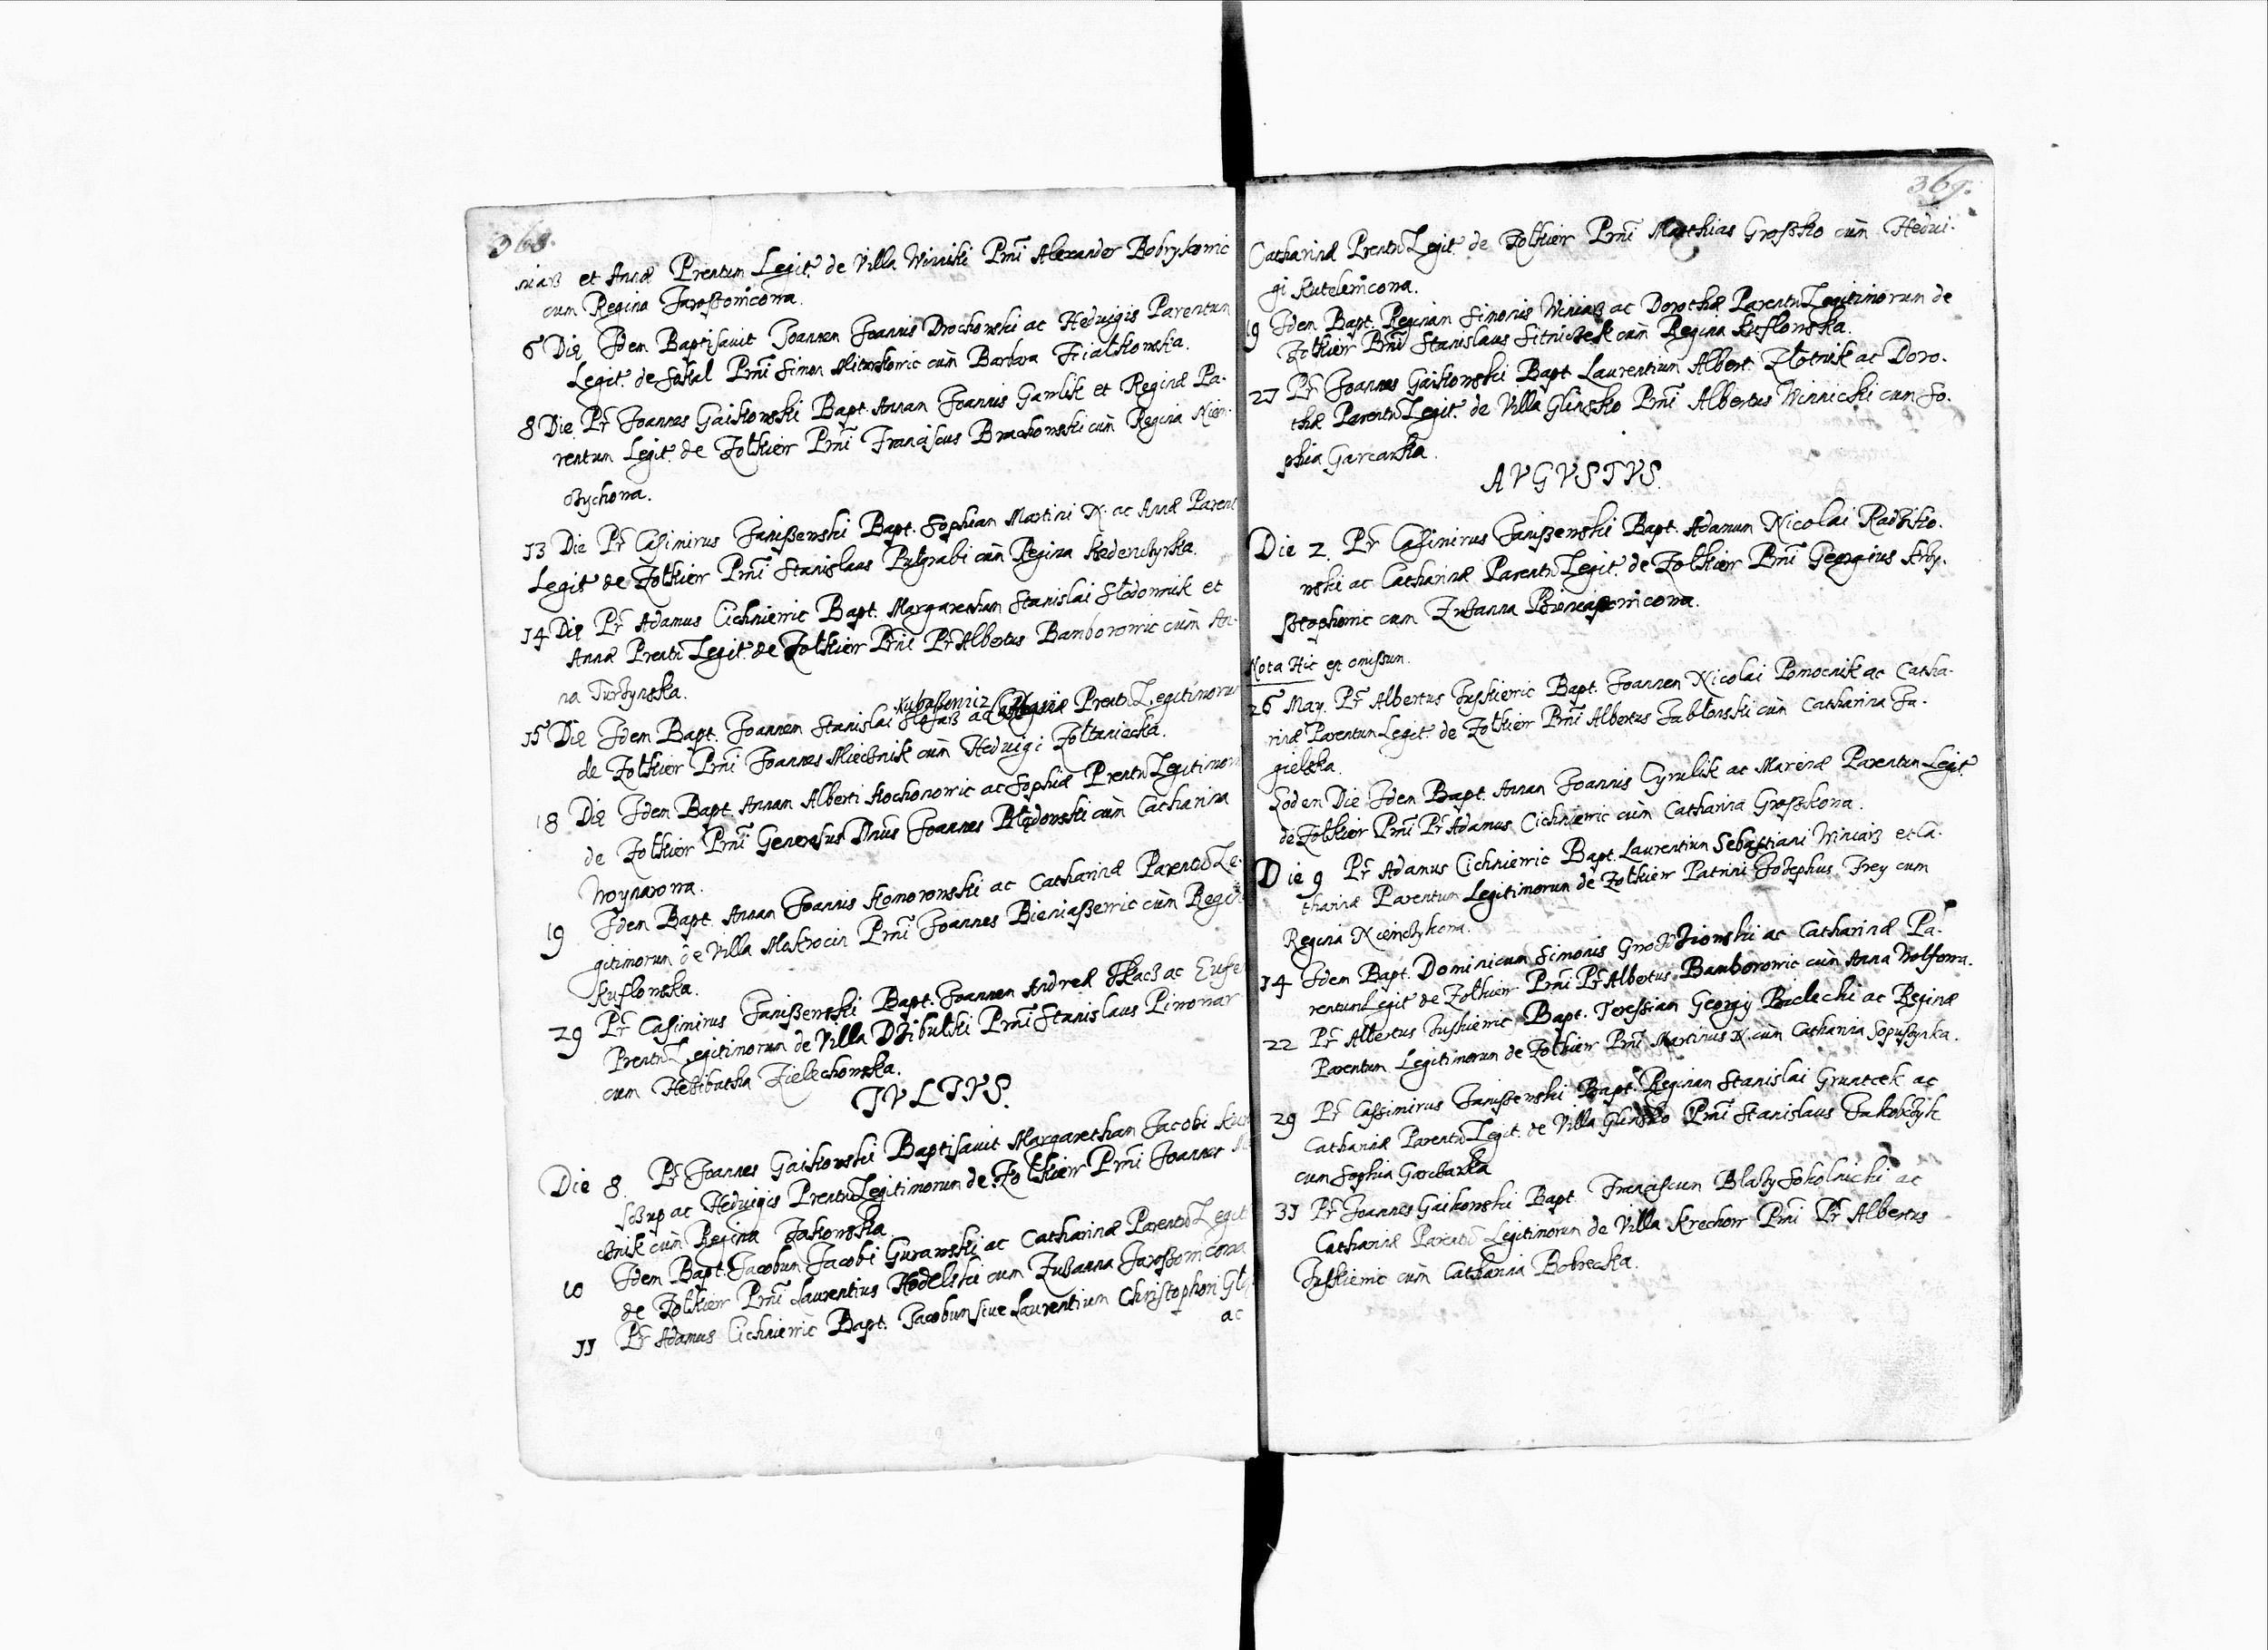 368.
niarz et Annæ Prentum Legit. de Villa Winniki Prni Alexander Bobrykowic
cum Regina Jaroszowicowa.
6 Die Idem Baptisauit Joannem Joannis Drochowski ac Heduigis Parentum
Legit. de Sokal Prni Simon Miturkowic cum Barbara Fiałkowska.
8 Die Pr Joannes Gaikowski Bapt. Annam Joannis Gawlik et Reginæ Pa-
rentum Legit. de Zołkiew Prni Franciscus Brachowski cum Regina Niem-
czychowa.
13 Die Pr Casimirus Janiszewski Bapt. Sophiam Martini N. ac Annæ Parent
Legit de Zołkiew Prni Stanislaus Pułgrabi cum Regina Kedenczyrka.
14 Die Pr Adamus Cichniewic Bapt. Margaretham Stanislai Słodownik et
Annæ Prentu Legit. de Zołkiew Prni Pr Albertus Bamborowic cum An-
na Turzynska.
15 Die Idem Bapt. Joannem Stanislai ac Prentu Legitimorum
de Zołkiew Prni Joannes Miecznik cum Heduigi Zołtaniecka.
18 Die Idem Bapt. Annam Alberti Kochonowic ac Sophiæ Prentu Legitimor
de Zołkiew Prni Generosus Dnus Joannes Błędowski cum Catharina
Woynarowa.
19 Idem Bapt. Annam Joannis Komorowski ac Catharinæ Parentu Le-
gitimorum de Villa Mokrocin Prni Joannes Bieniaszewic cum Regin
Kuflowska.
29 Pr Casimirus Janiszewski Bapt. Joannem Andreæ Tkacz ac Eufe
Prentu Legitimorum de Villa Dzibulki Prni Stanislaus Piwowar
cum Helzbatha Zielechowska.
IVLIVS.
Die 8. Pr Joannes Gaikowski Baptisauit Margaretham Jacobi
ac Heduigis Prentu Legitimorum de Zołkiew Prni Joannes
cznik cum Regina Zakowska.
10 Idem Bapt. Jacobum Jacobi Gurawski ac Catharinæ Parentu Legit
de Zołkiew Prni Laurentius Hodelski cum Zuzanna Jaroszowicowa
11 Pr Adamus Cichniewic Bapt. Jacobum siue Laurentium Christophori
ac
369.
Catharinæ Prentu Legit. de Zołkiew Prni Matthias Groszko cum Hedui-
gi Kutelewicowa.
19 Idem Bapt. Reginam Simonis Winiarz ac Dorothæ Parentu Legitimorum de
Zołkiew Prni Stanislaus Sitniczek cum Regina Kuflowska.
27 Pr Joannes Gaikowski Bapt Laurentium Albert. Złotnik ac Doro-
thæ Parentu Legit. de Villa Glinsko Prni Albertus Winnicki cum So-
phia Garcarka.
AVGVSTVS.
Die 2. Pr Casimirus Janiszewski Bapt. Adamum Nicolai Radziko-
wski ac Catharinæ Parentu Legit. de Zołkiew Prni Georgius Krzy-
sztophowic cum Zuzanna Bieniaszowicowa.
Nota Hic est omissum.
26 May. Pr Albertus Juskiewic Bapt. Joannem Nicolai Pomocnik ac Catha-
rinæ Parentum Legit. de Zołkiew Prni Albertus Jabłonski cum Catharina Ja-
gielska.
Eodem Die Idem Bapt. Annam Joannis Cyrulik ac Marinæ Parentum Legit.
de Zołkiew Prni Pr Adamus Cichniewic cum Catharina Groszkowa.
Die 9 Pr Adamus Cichniewic Bapt. Laurentium Sebastiani Winiarz et Ca-
tharinæ Parentum Legitimorum de Zołkiew Patrini Josephus Frey cum
Regina Niemczykowa.
14 Idem Bapt. Dominicum Simonis Gnozdziowski ac Catharinæ Pa-
rentum Legit de Zołkiew Prni Pr Albertus Bamborowic cum Anna Wolfowa.
22 Pr Albertus Juskiewic Bapt. Teressiam Georgy Bielecki ac Reginæ
Parentum Legitimorum de Zołkiew Prni Martinus N. cum Catharina Sopuszynka.
29 Pr Cassimirus Janiszewski Bapt. Reginam Stanislai Gruntcek ac
Catharinæ Parentu Legit. de Villa Glinsko Prni Stanislaus Jakobczyk
cum Sophia Garcbarka
31 Pr Joannes Gaikowski Bapt. Franciscum Blasÿ Sokolnicki ac
Catharinæ Parentu Legitimorum de Villa Krechow Prni Pr Albertus
Juskiewic cum Catharina Bobrecka.